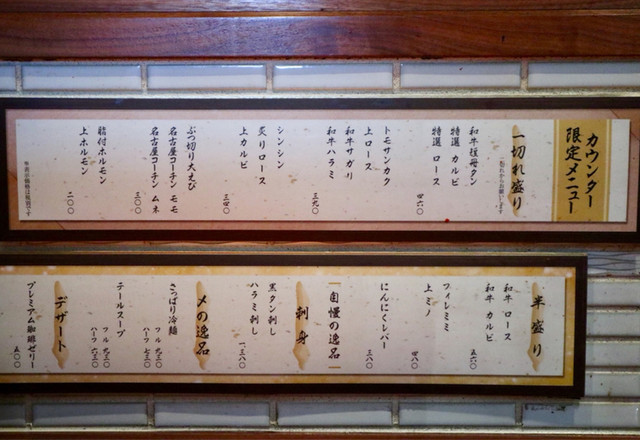 カウンター
限定メニュー
一切れ盛り
二切れからお願いします
和牛極母タン
特選 カルビ
特選 ロース
四六〇
トモサンカク
上ロース
和牛サガリ
和牛ハラミ
三九〇
シンシン
炙りロース
上カルビ
三四〇
ぶつ切り大えび
名古屋コーチン モモ
名古屋コーチン ムネ
三〇〇
脂付ホルモン
上ホルモン
二〇〇
半盛り
和牛 ロース
和牛 カルビ
五六〇
フィレミミ
上ミノ
四八〇
にんにくレバー
三八〇
自慢の逸品
刺身
黒タン刺し
ハラミ刺し
一、三八〇
〆の逸品
さっぱり冷麺
フル 九三〇
ハーフ 七三〇
テールスープ
フル 九三〇
ハーフ 六三〇
デザート
プレミアム珈琲ゼリー
五〇〇